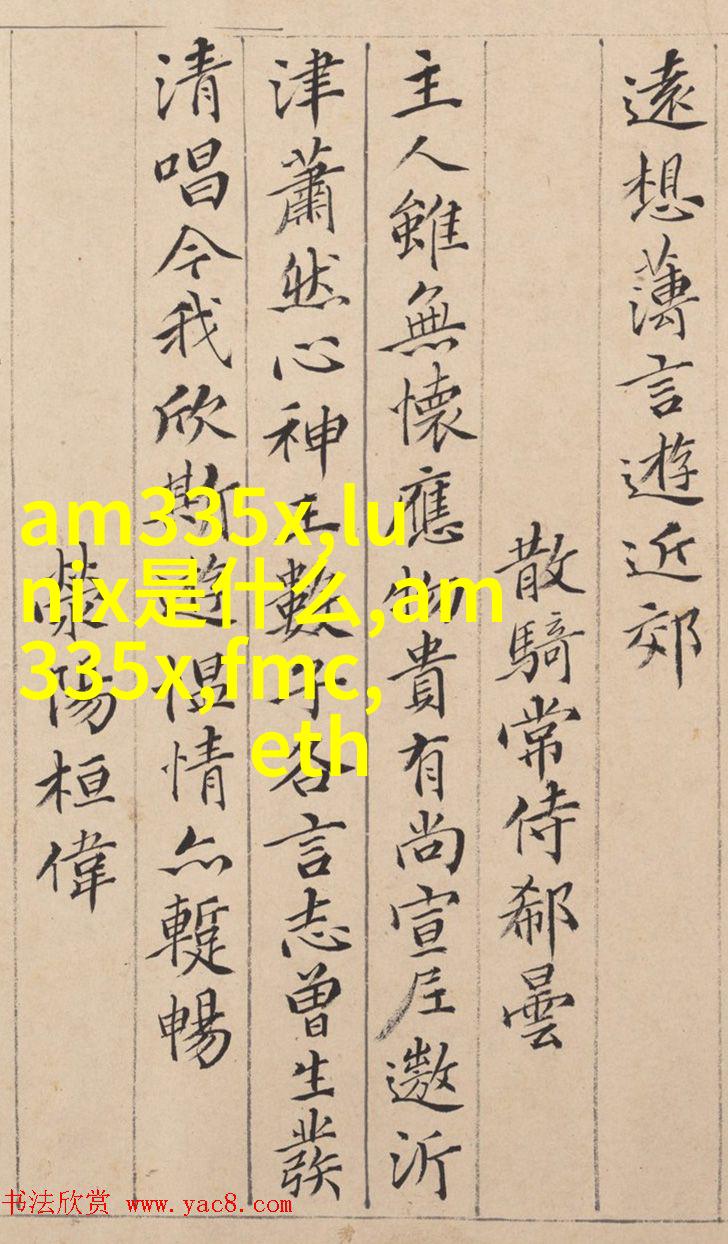 遠想薄言遊近郊
散騎常侍郗曇
主人雖無懷應物貴有尚宣尼遨沂
津蕭然心神王數子各言志曾生發
清唱今我欣斯遊愠情亦蹔暢
滎陽桓偉
am335x,lu
nix是什么,am
335x,fmc,
eth
书法欣赏 www.yac8.com